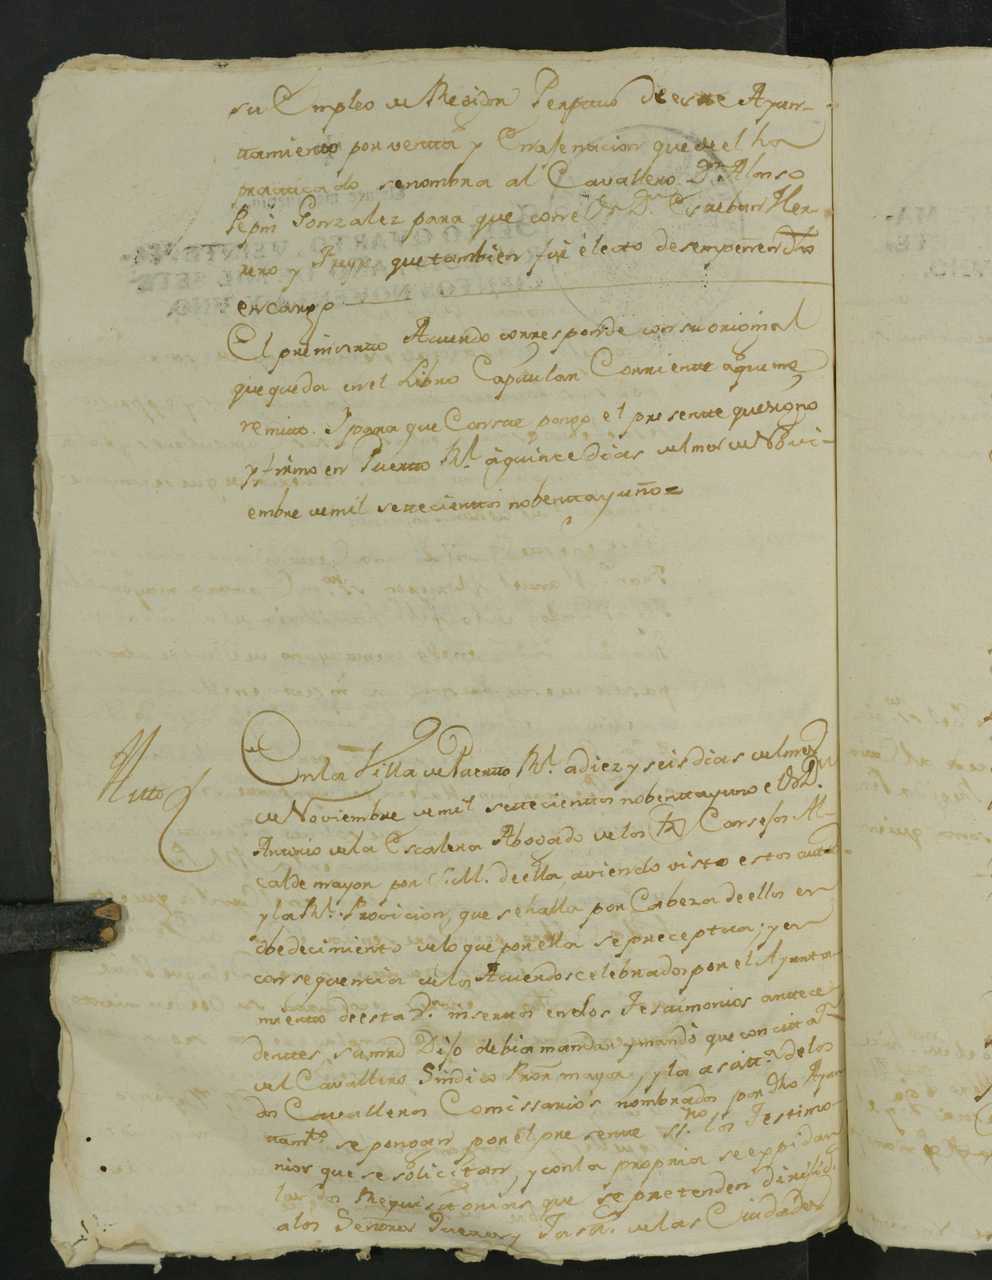 su Empleo de Regidor Perpetuo de este Ayun-
tamiento por venta y Enagenacion que de el ha
practicado se nombra al Cavallero Dn. Alonso
Pepin Gonzalez para que con el Sr. Dn. Esteban Her-
rero y que tambien fue electo desempeñen dho
encargo
El preinserto Acuerdo corresponde con su original
que queda en el Libro Capitular Corriente a que me
remito. Y para que Conste pongo el presente que signo
y firmo en Puerto Rl. a quince dias del mes de Novi-
embre de mil setecientos nobenta y uno =
Auto
En la Villa de Puerto Rl. a diez y seis dias del mes
de Noviembre de mil setecientos nobenta y uno el Sr. Dn.
Antonio de la Escalera Abogado de los Rs Consejos Al-
calde mayor por S.M. de ella, aviendo visto estos autos
y la Rl. Provicion, que se halla por Cabeza de ellos en
obedecimiento de lo que por ella se preceptua; y en
consequencia de los Acuerdos celebrados por el Ayunta-
miento de esta Va. insertos en los Testimonios antece
dentes, su mrd Dijo debia mandar y mandó que con citta.n
del Cavallero Sindico Pror. mayor, y la asistt.a de los
dos Cavalleros Comissarios nombrados por dho Ayun
tamto. se pongan por el presente Ss.no los Testimo-
nios que se solicitan, y con la propria se expidan
las dos Requisitorias que se pretenden dirijid.s
a los Señores Juezes y Justas. de las Ciudades